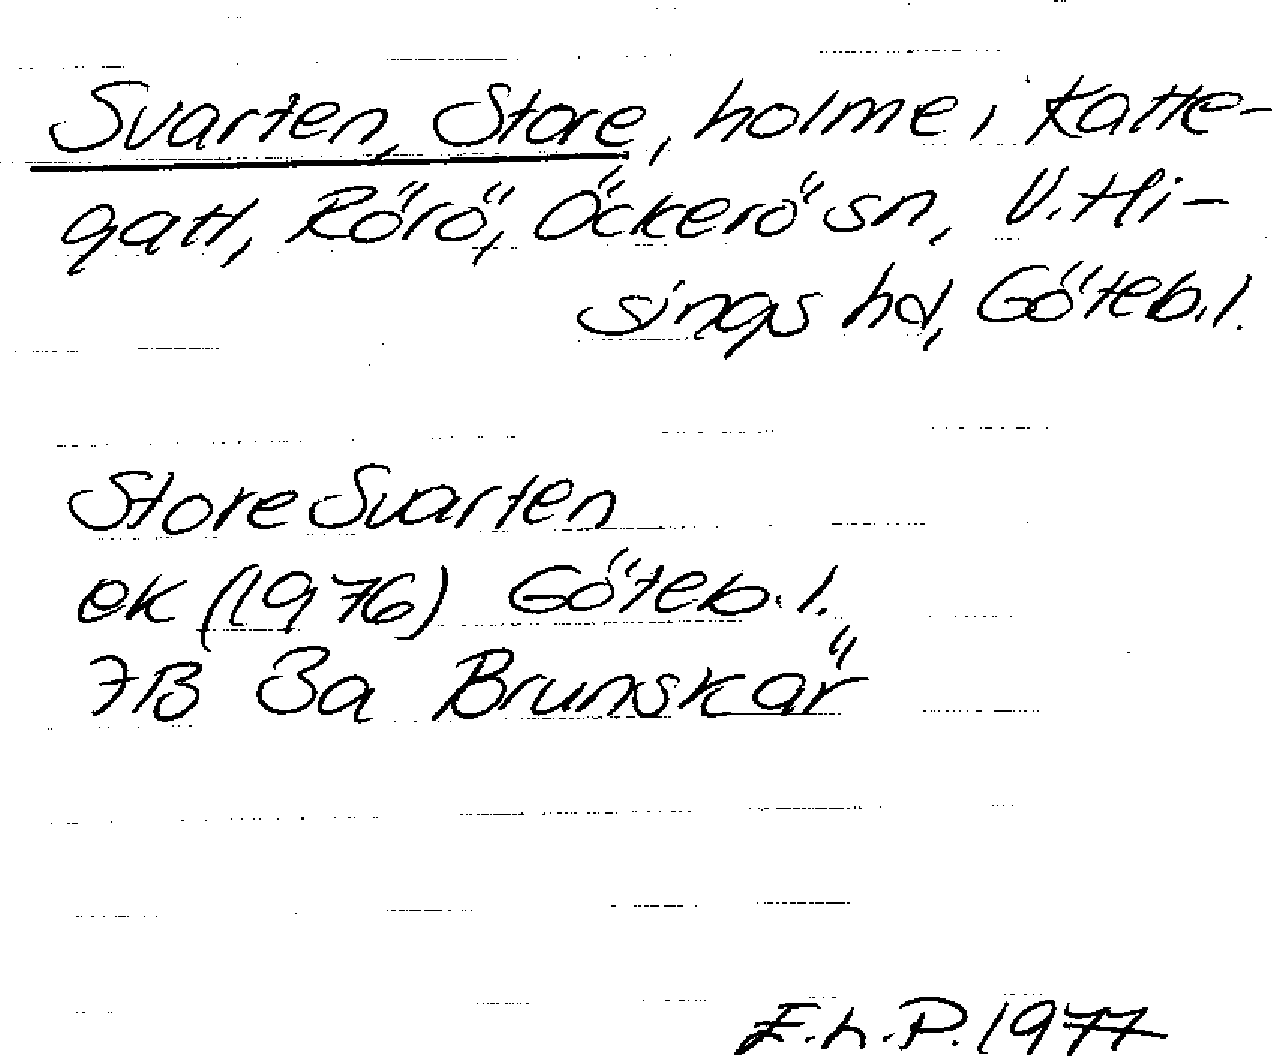 Svarten, Store, holme i Katte-
gatt, Rörö, Öckerö sn, V. Hi-
sings hd, Göteb.l.
Store Svarten
ek (1976) Göteb.l.
7B 3a Brunskär
E.h.P. 1977